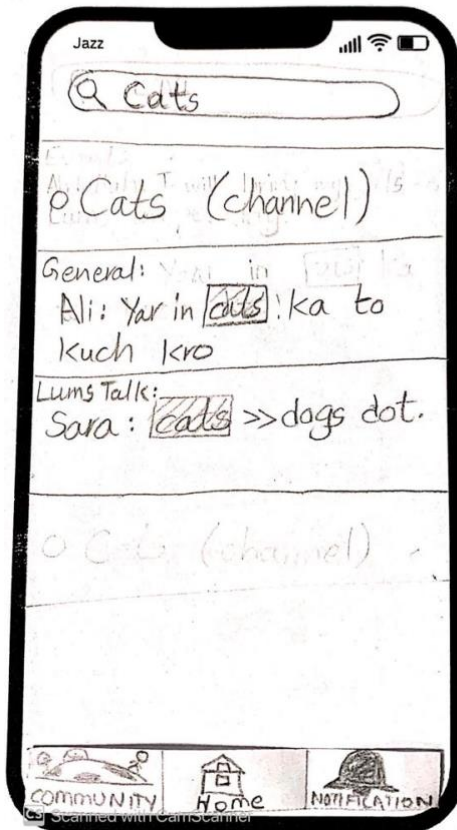 Jazz
Cats
Cats (channel)
General:
Ali: Yar in cats ka to
kuch kro
Lums Talk:
Sara: cats >> dogs dot.
Cats (channel)
COMMUNITY
Home
NOTIFICATION
CS Scanned with CamScanner